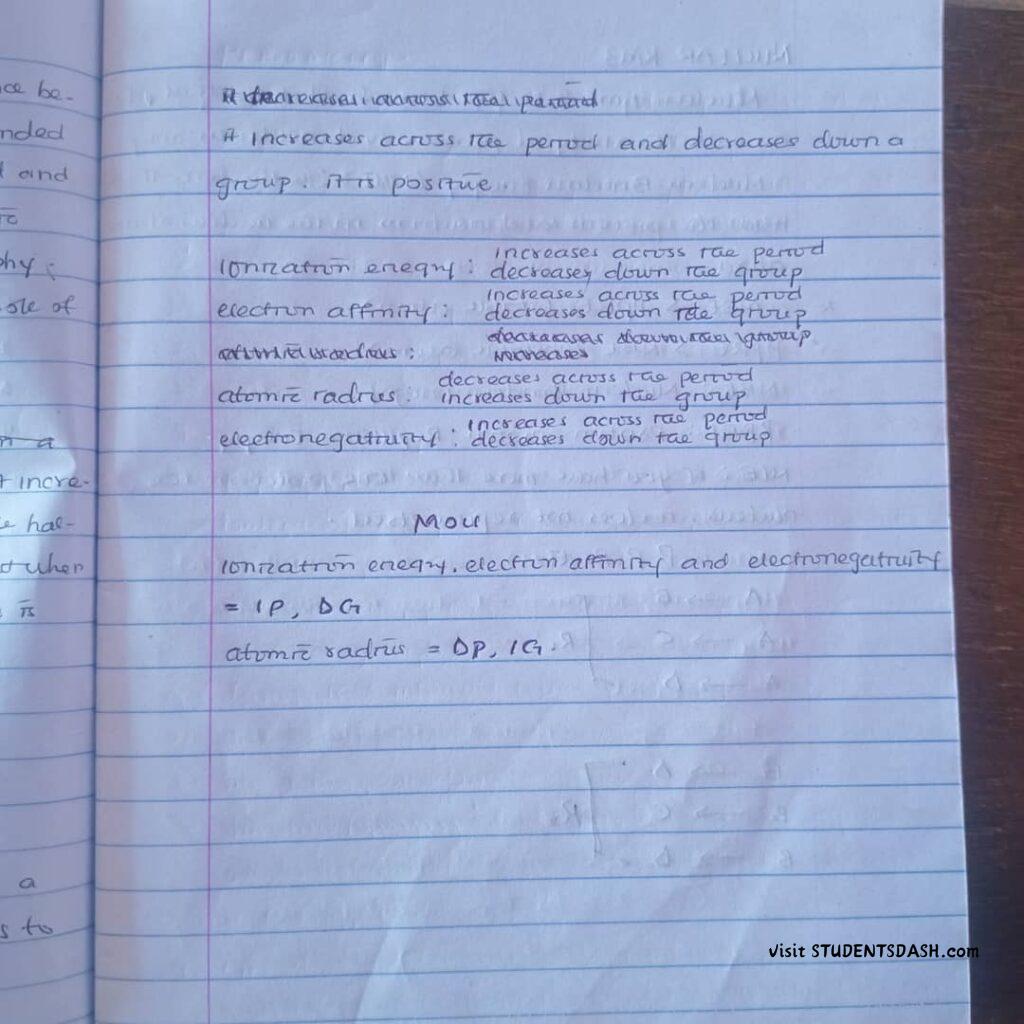 ce be-
nded
and
hy;
ole of
n a
t incre-
e hal-
when
is
a
s to
It increases across the period and decreases down a
group. it is positive.
Ionization enegry: increases across the period
decreases down the group
electron affinity: increases across the period
decreases down the group
atomic radius:
decreases down the group
increases
atomic radius: decreases across the period
increases down the group
electronegativity: increases across the period
decreases down the group
MOU
Ionization enegry, electron affinity and electronegativity
= IP, DG
atomic radius = DP, IG.
Visit STUDENTSDASH.com